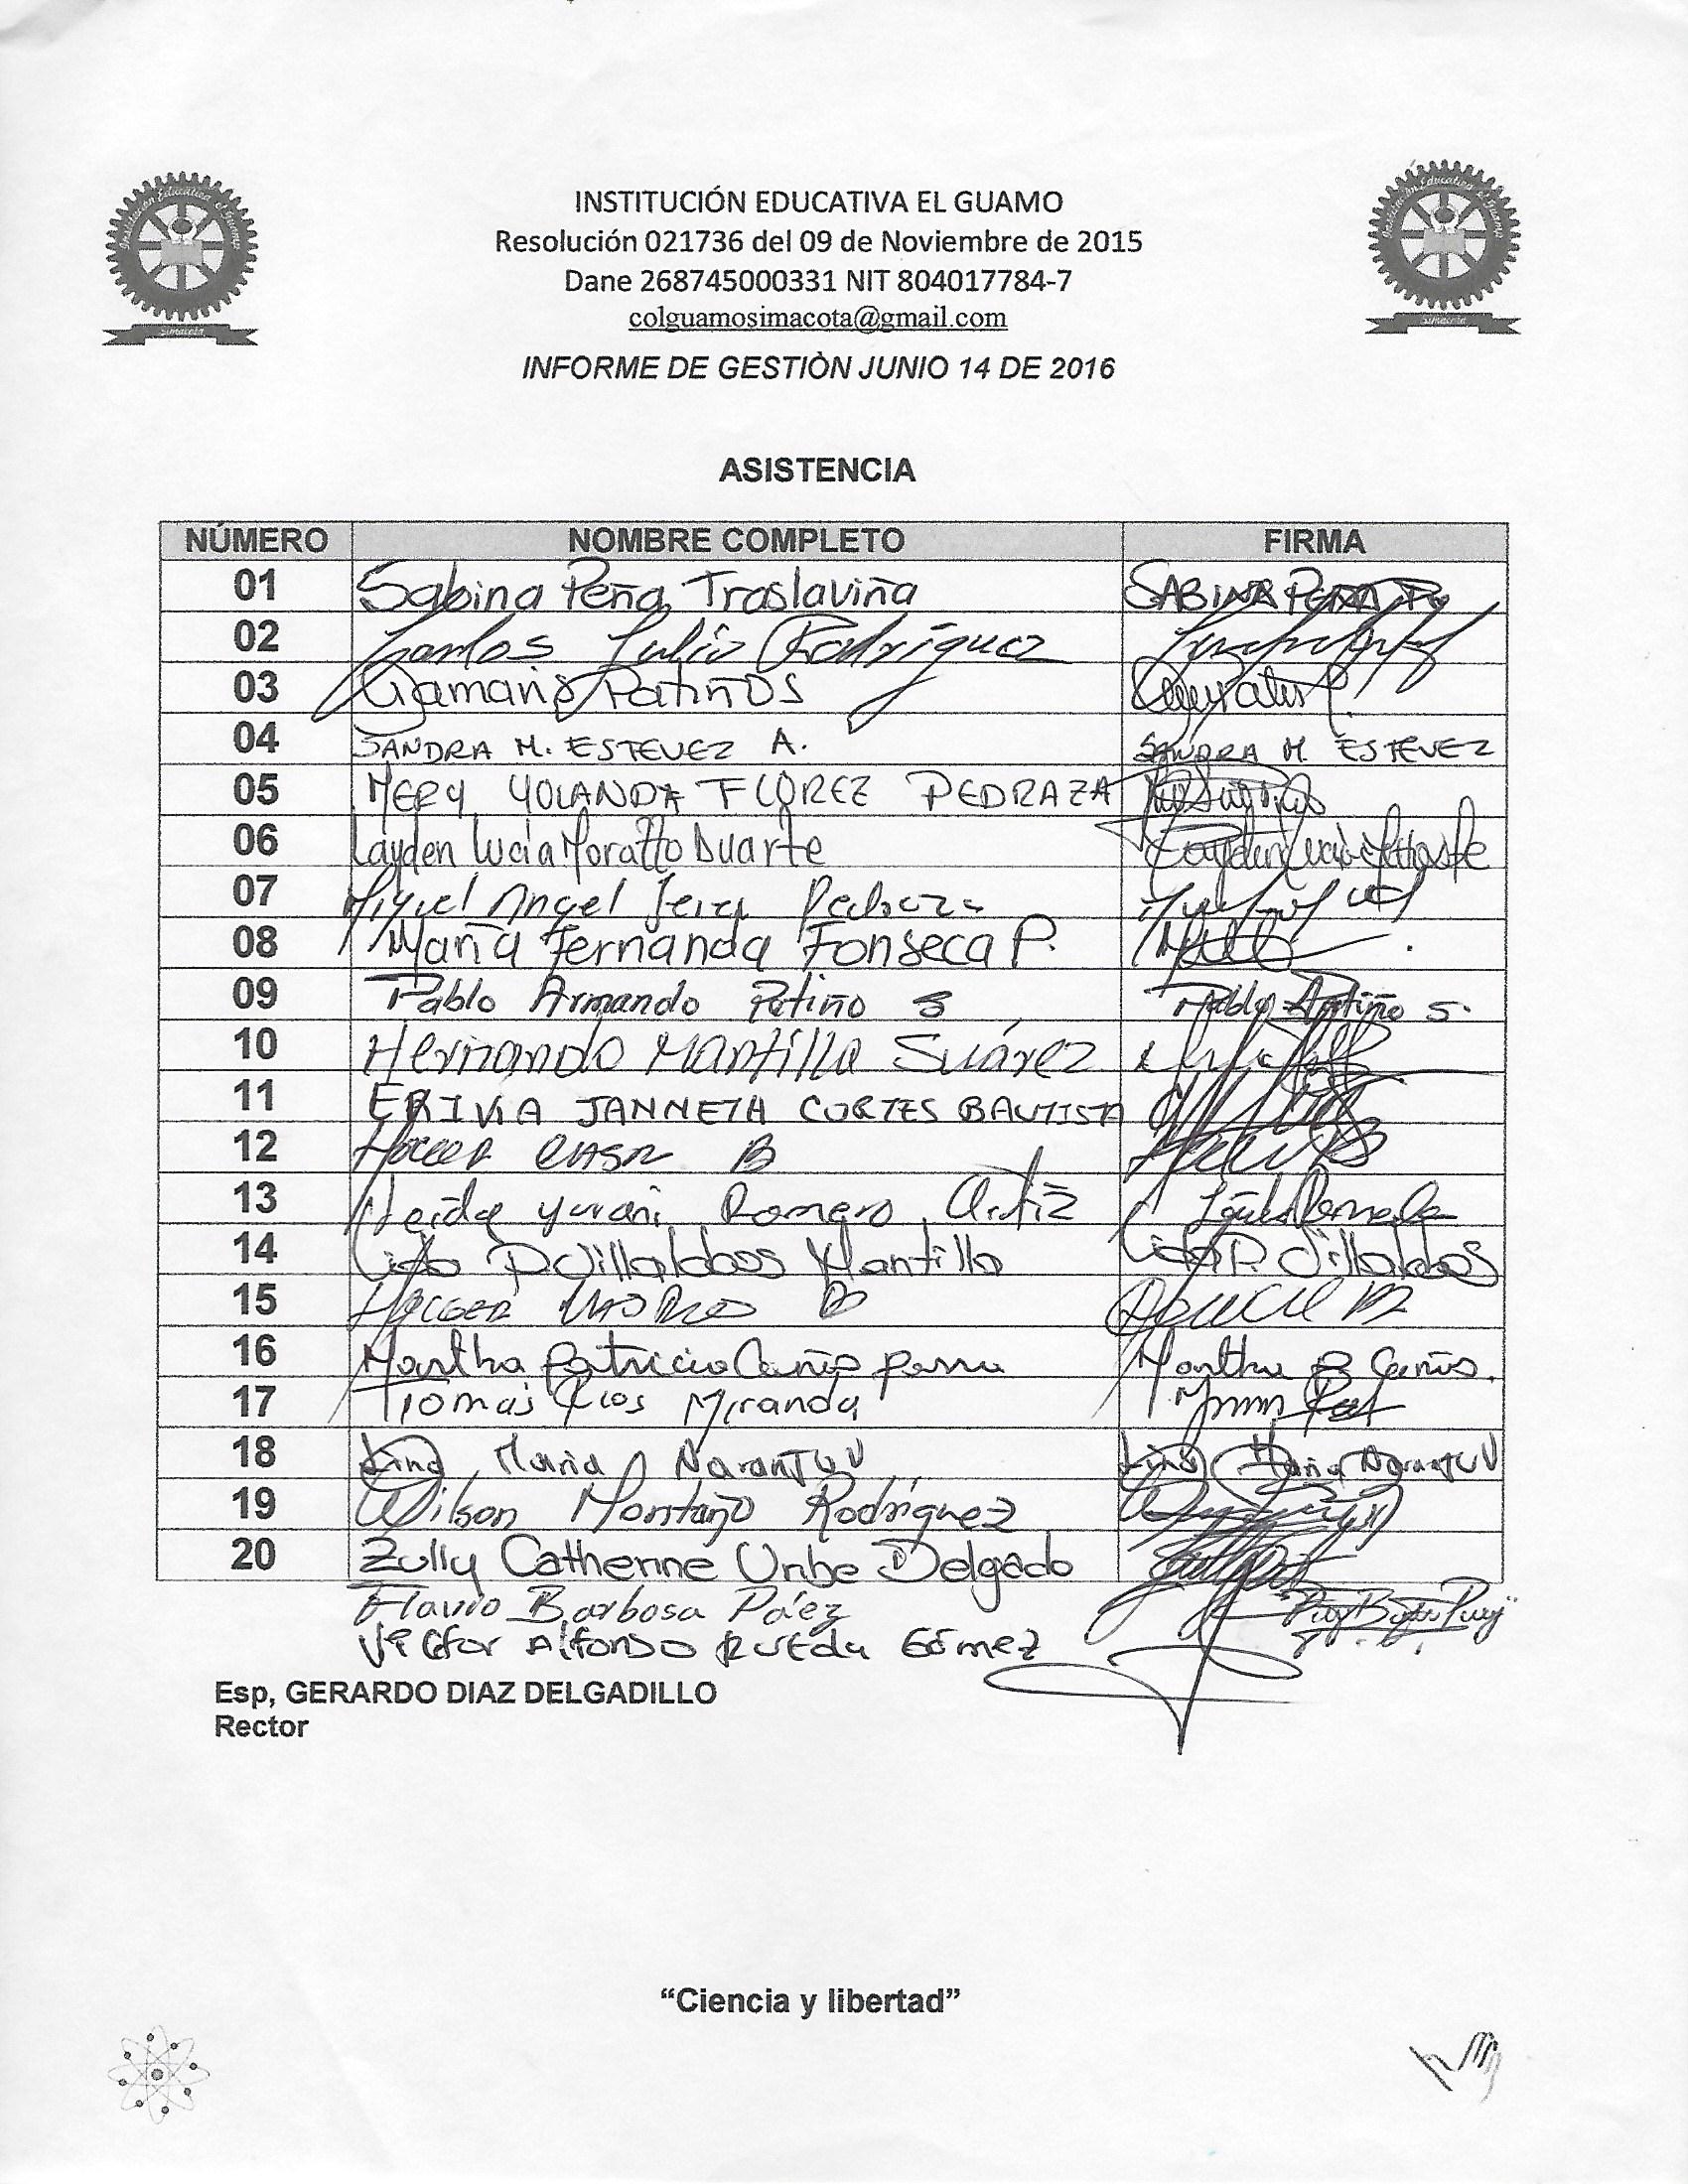 Institución Educativa el Guamo
Simacota
Institución Educativa el Guamo
Simacota
INSTITUCIÓN EDUCATIVA EL GUAMO
Resolución 021736 del 09 de Noviembre de 2015
Dane 268745000331 NIT 804017784-7
colguamosimacota@gmail.com
INFORME DE GESTIÒN JUNIO 14 DE 2016
ASISTENCIA
NÚMERO NOMBRE COMPLETO FIRMA
01 Sabina Peña Traslaviña SABINA PEÑA
02 Carlos Julio Rodríguez
03 Patiño S
04 SANDRA M. ESTEVEZ A. SANDRA M. ESTEVEZ
05 MERY YOLANDA FLOREZ PEDRAZA
06 Layden Lucía Moratto Duarte Layden Lucía
07 Miguel Angel
08 María Fernanda Fonseca P.
09 Pablo Armando Patiño S Pablo Patiño S.
10 Hernando Mantilla Suárez
11 JANNETH CORTES BAUTISTA
12 B
13 Yurani Romero Ortiz
14 P Villalobos Mantilla P. Villalobos
15 B
16 Martha Patricia Martha P
17 Tomas Rios Miranda
18 Lina María Naranjo V Lina María Naranjo V
19 Wilson Montaño Rodríguez
20 Zully Catherine Uribe Delgado
Flavio Barbosa Páez
Victor Alfonso Rueda Gómez
Esp, GERARDO DIAZ DELGADILLO
Rector
“Ciencia y libertad”